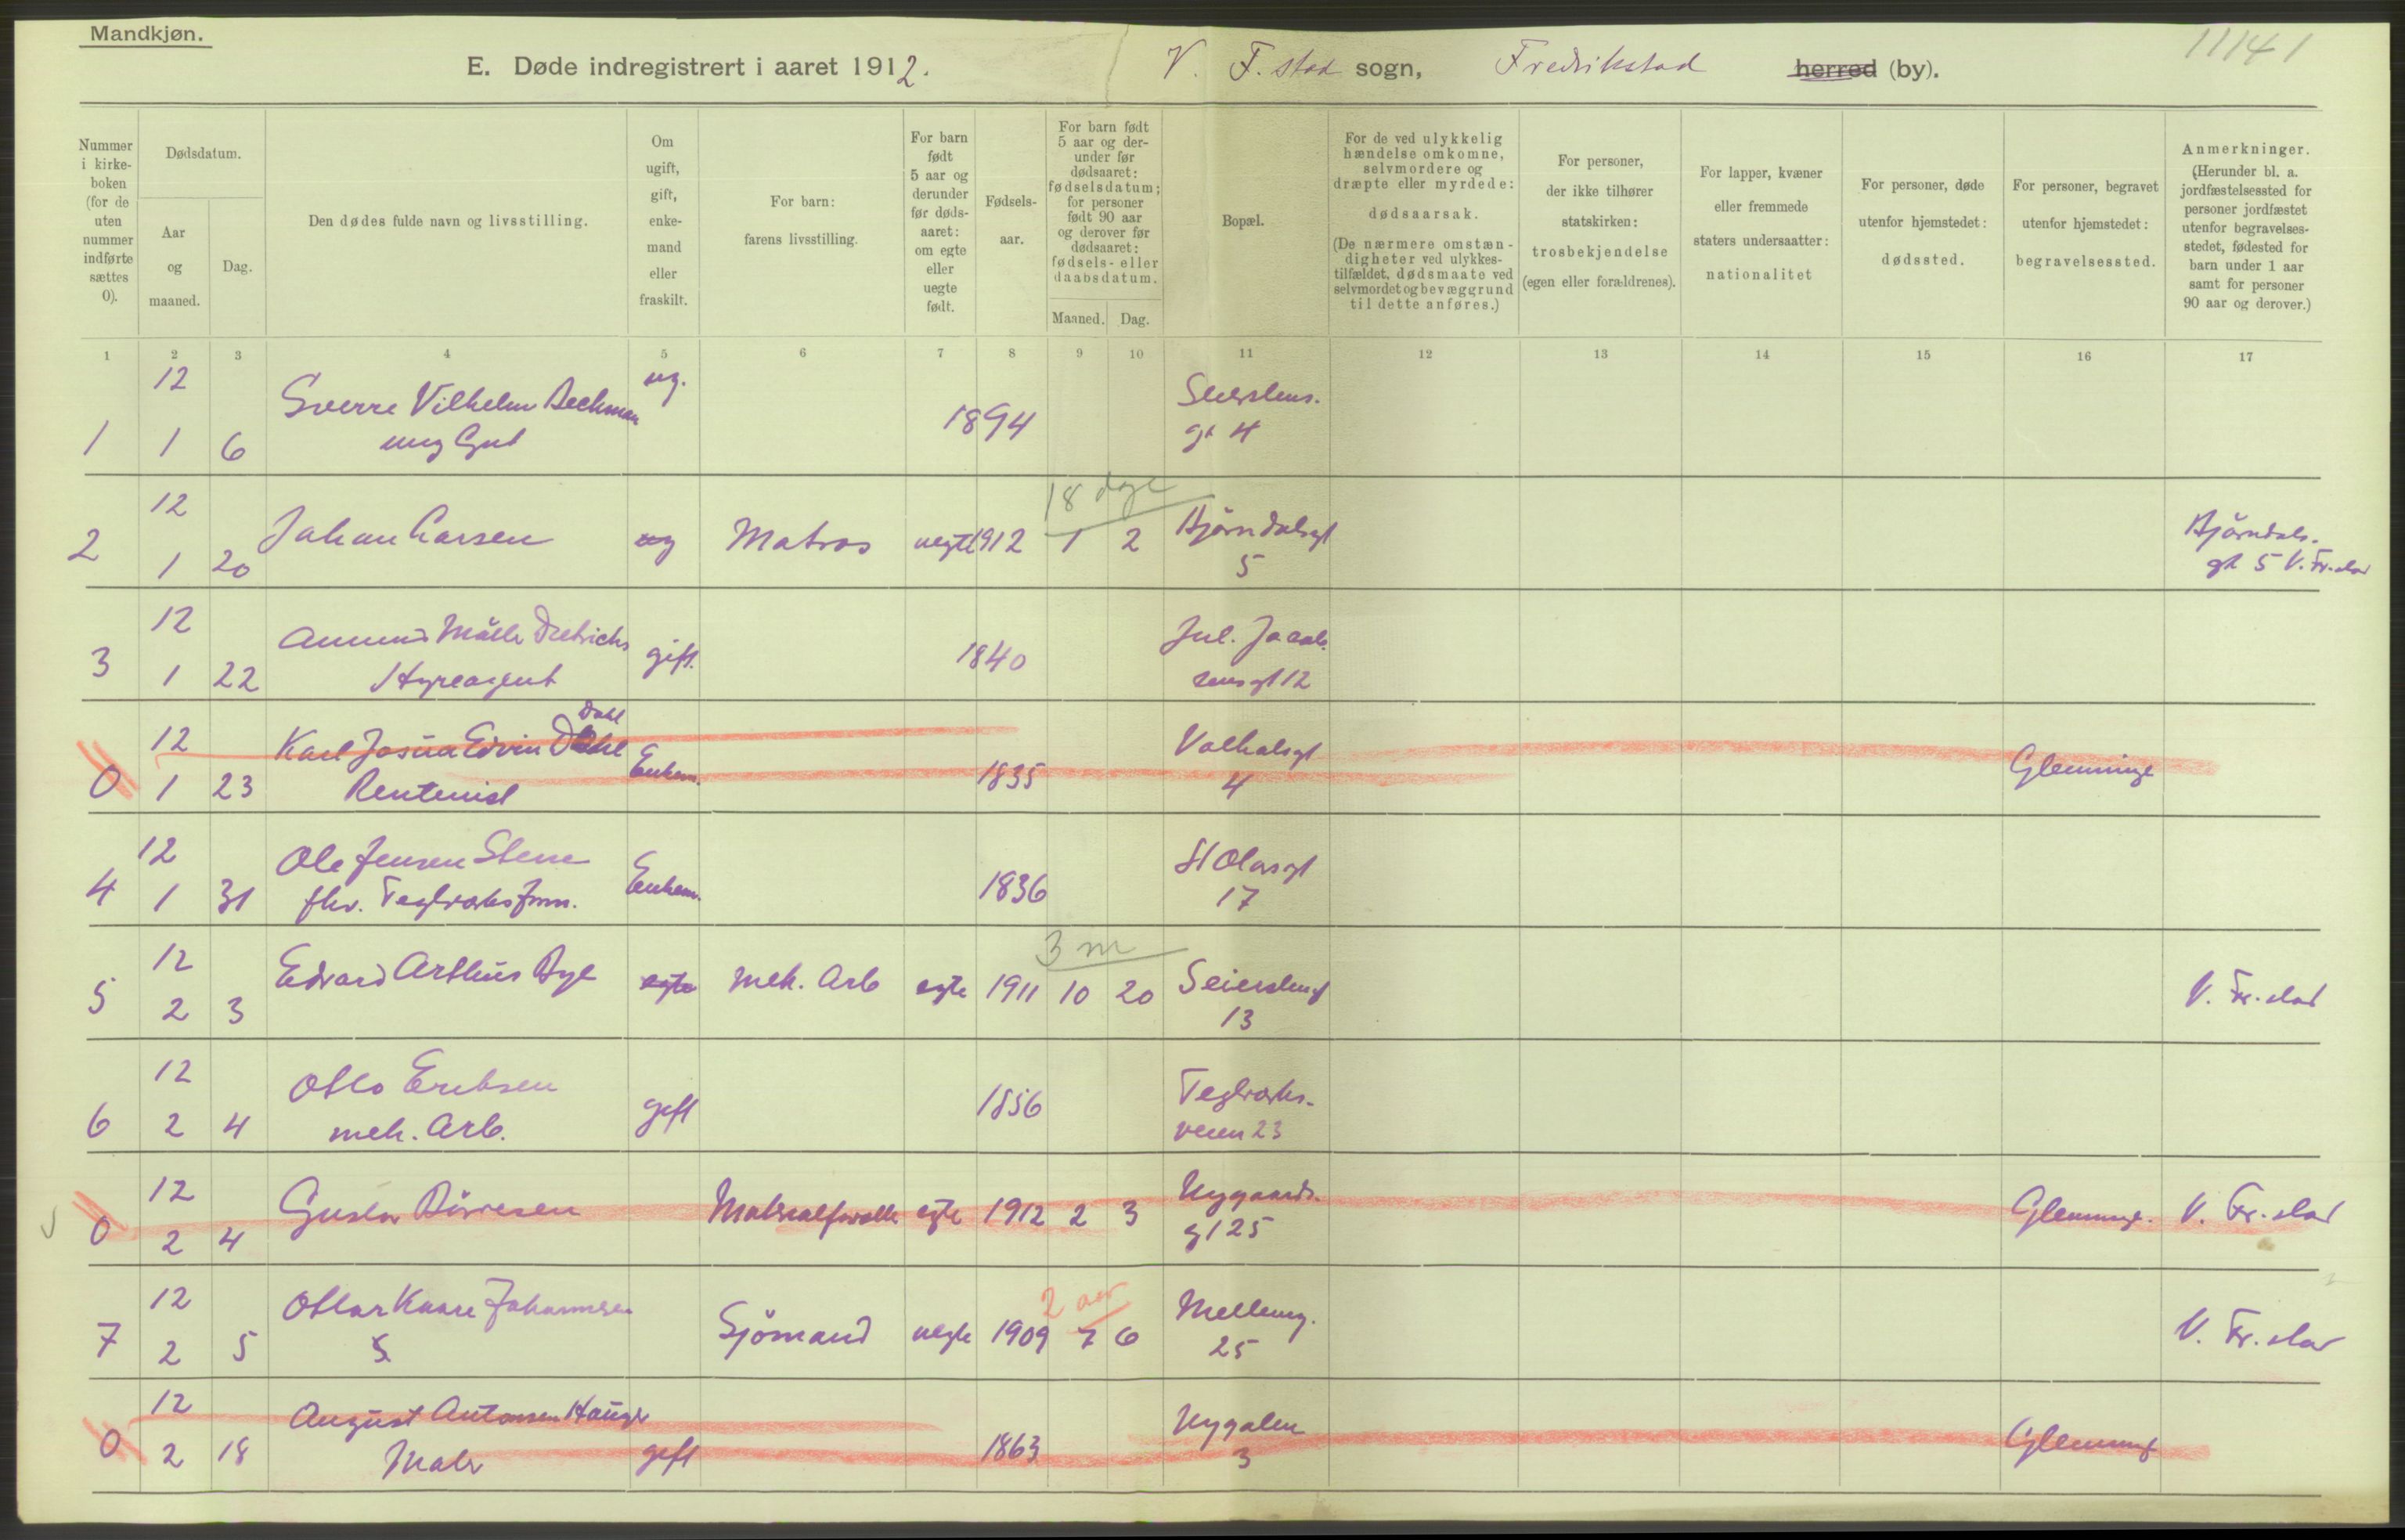 Mandkjøn.
11141
E. Døde indregistrert i aaret 1912. V. F.stad sogn, Fredrikstad herred (by).
Nummer i kirke-boken (for de uten nummer indførte sættes 0).
Dødsdatum.
Aar og maaned.
Dag.
Den dødes fulde navn og livsstilling.
Om ugift, gift, enke-mand eller fraskilt.
For barn: farens livsstilling.
For barn født 5 aar og derunder før døds-aaret: om egte eller uegte født.
Fødsels-aar.
For barn født 5 aar og der-under før dødsaaret: fødselsdatum; for personer født 90 aar og derover før dødsaaret: fødsels- eller daabsdatum.
Maaned. Dag.
Bopæl.
For de ved ulykkelig hændelse omkomne, selvmordere og dræpte eller myrdede: dødsaarsak. (De nærmere omstæn-digheter ved ulykkes-tilfældet, dødsmaate ved selvmordet og bevæggrund til dette anføres.)
For personer, der ikke tilhører statskirken: trosbekjendelse (egen eller forældrenes).
For lapper, kvæner eller fremmede staters undersaatter: nationalitet
For personer, døde utenfor hjemstedet: dødssted.
For personer, begravet utenfor hjemstedet: begravelsessted.
Anmerkninger. (Herunder bl. a. jordfæstelsessted for personer jordfæstet utenfor begravelses-stedet, fødested for barn under 1 aar samt for personer 90 aar og derover.)
1 2 3 4 5 6 7 8 9 10 11 12 13 14 15 16 17
12 Sverre Vilhelm Beckman ug.
1 1 6 ung Gut 1894 gt 4
18 dage
12
2 1 20 Johan Larsen ug Matros uegte 1912 1 2 Bjørndalsgt 5 Bjørndals-
gt 5 V. Fr.stad
12 Müller Dietrichs Jul. Jacob-
3 1 22 Hyreagent gift. 1840 sensgt 12
Dahl
12 Karl Josua Edvin Valhalsgt
0 1 23 Rentenist Enkem. 1835 4 Glemminge
12 Ole Jensen Stene St Olavsgt
4 1 31 fhv. Teglverksfmn. Enkem. 1836 17
3 m
12 Edvard Arthur Bye
5 2 3 egte Mek. Arb egte 1911 10 20 Seierstensgt 13 V. Fr.stad
12 Otto Eriksen Teglverks-
6 2 4 mek. Arb. gift 1856 veien 23
12 Gustav Børresen Nygaards-
0 2 4 egte 1912 2 3 gt 25 Glemminge. V. Fr.stad
2 aar
12 Ottar Kaare Johannesen Mellemg.
7 2 5 S. Sjømand uegte 1909 7 6 25 V. Fr.stad
12 August Antonsen Hauger Nygaten
0 2 18 Maler gift 1863 3 Glemminge